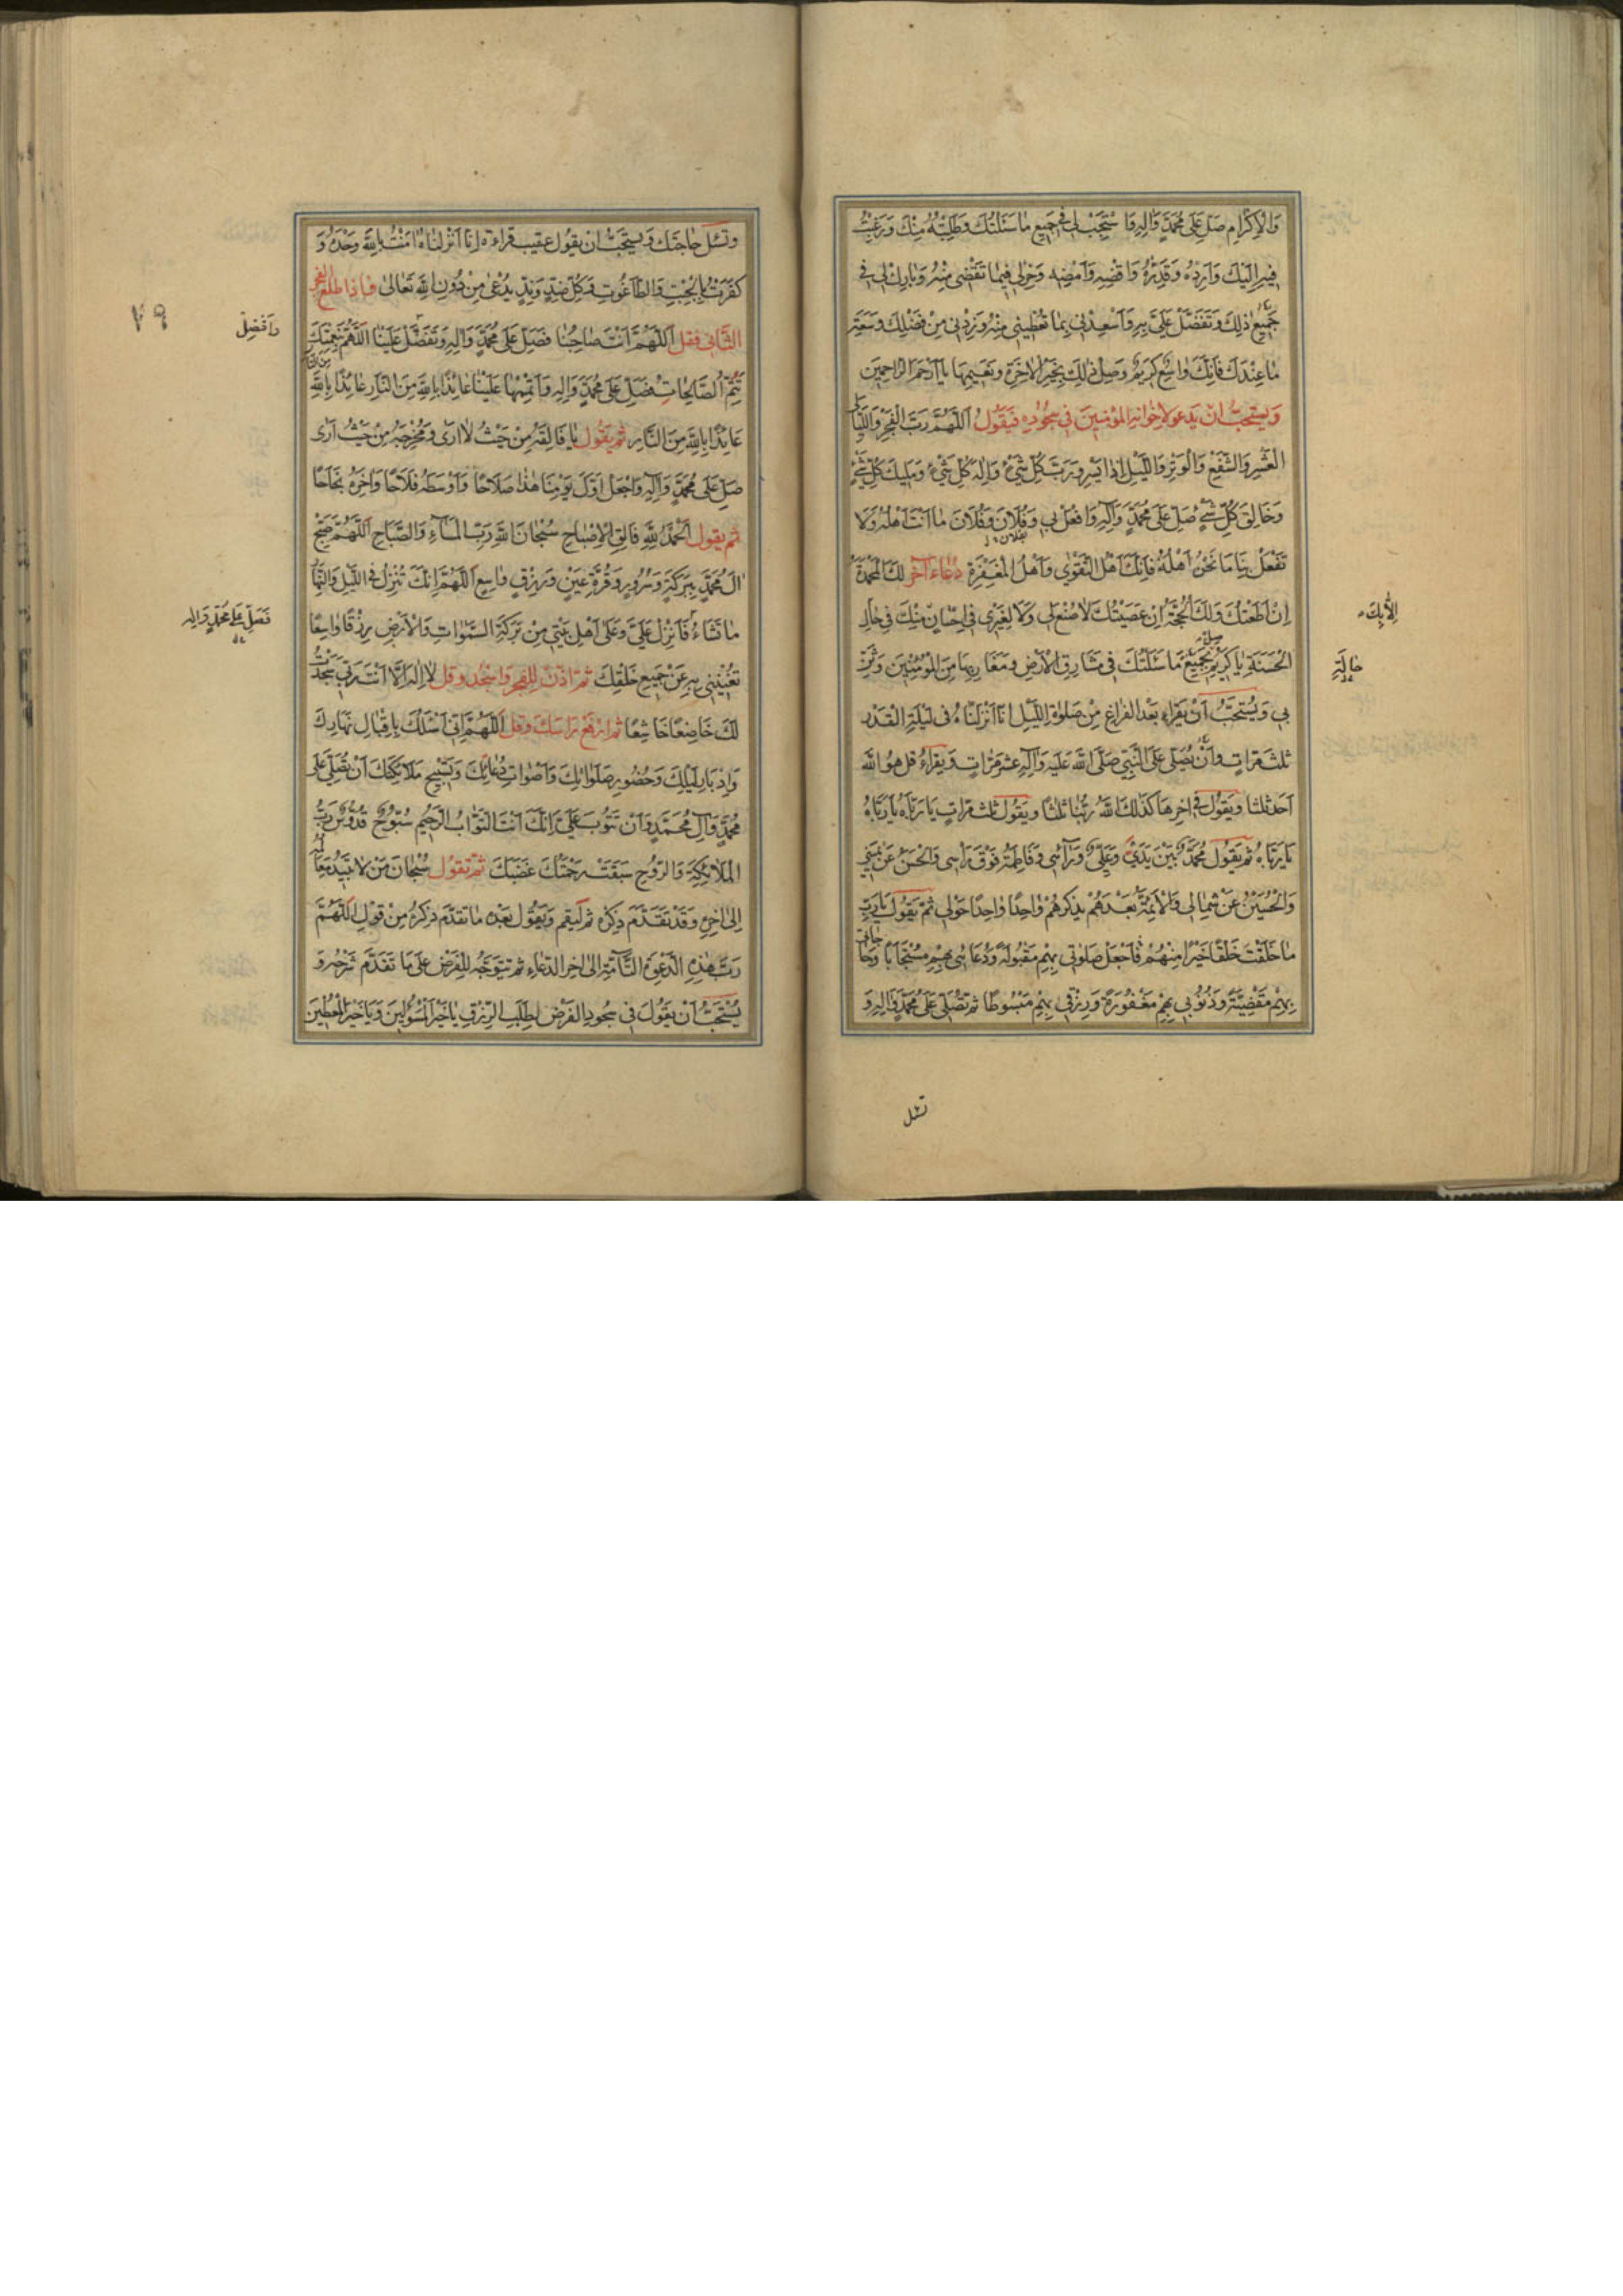 وَالْاِكْرٰامِ صَلِّ عَلٰى مُحَمَّدٍ وَاٰلِهِ وَاسْتَجِبْ لِي فِي جَمِيعِ مٰا سَئَلْتُكَ وَطَلَبْتُهُ مِنْكَ وَرَغِبْتُ
فِيهِ اِلَيْكَ وَاَرِدْهُ وَقَدِّرْهُ وَاقْضِهِ وَاَمْضِهِ وَخِرْ لِي فِيمٰا تَقْضِي مِنْهُ وَبٰارِكْ لِي فِي
جَمِيعِ ذٰلِكَ وَتَفَضَّلْ عَلَيَّ بِهِ وَاَسْعِدْنِي بِمٰا تُعْطِينِي مِنْهُ وَزِدْنِي مِنْ فَضْلِكَ وَسَعَةِ
مٰا عِنْدَكَ فَاِنَّكَ وٰاسِعٌ كَرِيمٌ وَصِلْ ذٰلِكَ بِخَيْرِ الْاٰخِرَةِ وَنَعِيمِهٰا يٰا اَرْحَمَ الرّٰاحِمِينَ
وَيستحبّ ان يَدعو لاِخوانه المؤمنين في سجُوده فيَقُولُ اَللّٰهُمَّ رَبَّ الْفَجْرِ وَاللَّيٰالِي
الْعَشْرِ وَالشَّفْعِ وَالْوَتْرِ وَاللَّيْلِ اِذٰا يَسْرِ وَرَبَّ كُلِّ شَيْءٍ وَاِلٰهَ كُلِّ شَيْءٍ وَمَلِيكَ كُلِّ شَيْءٍ
وَخٰالِقَ كُلِّ شَيْءٍ صَلِّ عَلٰى مُحَمَّدٍ وَاٰلِهِ وَافْعَلْ بِي وَبِفُلٰانَ وَفُلٰانَ مٰا اَنْتَ اَهْلُهُ وَلٰا
تَفْعَلْ بِنٰا مٰا نَحْنُ اَهْلُهُ فَاِنَّكَ اَهْلُ التَّقْوٰى وَاَهْلُ الْمَغْفِرَةِ دُعاء آخر لَكَ الْمَحْمَدَةُ
اِنْ اَطَعْتُكَ وَلَكَ الْحُجَّةُ اِنْ عَصَيْتُكَ لٰا صُنْعَ لِي وَلٰا لِغَيْرِي فِي اِحْسٰانٍ مِنْكَ فِي حٰالِ
اِلّٰا بِكَ
الْحَسَنَةِ يٰا كَرِيمُ صِلْ بِجَمِيعِ مٰا سَئَلْتُكَ فِي مَشٰارِقِ الْاَرْضِ وَمَغٰارِبِهٰا مِنَ الْمُؤْمِنِينَ وَثَنِّ
حٰالَةِ
بِي وَيُسْتَحَبُّ اَنْ يَقْرَاَ بَعْد الفراغ مِن صَلوة اللَّيْلِ اِنّٰا اَنْزَلْنٰاهُ فِي لَيْلَةِ الْقَدْرِ
ثلث مَرّاتٍ وَاَنْ يُصَلِّي عَلَى النَّبِيِّ صَلَّى اللّٰهُ عَلَيْهِ وَاٰلِهِ عشر مَرّات وَيَقرأ قل هُوَ اللّٰهُ
اَحَد ثلثا ويَقُولُ في اخرها كَذٰلِكَ اللّٰهُ رَبُّنٰا ثلثًا ويَقُول ثلث مَرّاتٍ يٰا رَبّٰاهُ يٰا رَبّٰاهُ
يٰا رَبّٰاهُ ثم يَقُول مُحَمَّدٌ بَيْنَ يَدَيَّ وَعَلِيٌّ وَرٰائِي وَفٰاطِمَةُ فَوْقَ رَاْسِي وَالْحَسَنُ عَنْ يَمِينِي
وَالْحُسَيْنُ عَنْ شِمٰالِي وَالْاَئِمَّةُ بَعْدَهُمْ يذكرهُمْ وٰاحِدًا وٰاحِدًا حَوْلِي ثمّ يَقُول يٰا رَبِّ
مٰا خَلَقْتَ خَلْقًا خَيْرًا مِنْهُمْ فَاجْعَلْ صَلٰوتِي بِهِمْ مَقْبُولَةً وَدُعٰائِي بِهِمْ مُسْتَجٰابًا وَحٰاجٰاتِي
بِهِمْ مَقْضِيَّةً وَذُنُوبِي بِهِمْ مَغْفُورَةً وَرِزْقِي بِهِمْ مَبْسُوطًا ثم تُصَلّي عَلٰى مُحَمَّدٍ وَاٰلِهِ وَ
تسئل
وَتسئل حٰاجتك وَيستحبّ ان يَقُول عقيب قراءة اِنّٰا اَنْزَلْنٰاهُ اٰمَنْتُ بِاللّٰهِ وَحْدَهُ وَ
كَفَرْتُ بِالْجِبْتِ وَالطّٰاغُوتِ وَكُلِّ ضِدٍّ وَنِدٍّ يُدْعٰى مِنْ دُونِ اللّٰهِ تَعٰالٰى فاذا طلع الفجر
٧٩
الثَّاني فقل اَللّٰهُمَّ اَنْتَ صٰاحِبُنٰا فَصَلِّ عَلٰى مُحَمَّدٍ وَاٰلِهِ وَتَفَضَّلْ عَلَيْنٰا اَللّٰهُمَّ بِنِعْمَتِكَ
وَاَفْضِلْ
تَتِمُّ الصّٰالِحٰاتُ فَصَلِّ عَلٰى مُحَمَّدٍ وَاٰلِهِ وَاَتْمِمْهٰا عَلَيْنٰا عٰائِذًا بِاللّٰهِ مِنَ النّٰارِ عٰائِذًا بِاللّٰهِ مِنَ النّٰارِ
عٰائِذًا بِاللّٰهِ مِنَ النّٰارِ ثم يَقُول يٰا فٰالِقَهُ مِنْ حَيْثُ لٰا اَرٰى وَمُخْرِجَهُ مِنْ حَيْثُ اَرٰى
صَلِّ عَلٰى مُحَمَّدٍ وَاٰلِهِ وَاجْعَلْ اَوَّلَ يَوْمِنٰا هٰذٰا صَلٰاحًا وَاَوْسَطَهُ فَلٰاحًا وَاٰخِرَهُ نَجٰاحًا
ثم يقول اَلْحَمْدُ لِلّٰهِ فٰالِقِ الْاِصْبٰاحِ سُبْحٰانَ اللّٰهِ رَبِّ الْمَسٰاءِ وَالصَّبٰاحِ اَللّٰهُمَّ صَبِّحْ
اٰلَ مُحَمَّدٍ بِبَرَكَةٍ وَسُرُورٍ وَقُرَّةِ عَيْنٍ وَرِزْقٍ وٰاسِعٍ اَللّٰهُمَّ اِنَّكَ تُنْزِلُ فِي اللَّيْلِ وَالنَّهٰارِ
مٰا تَشٰاءُ فَاَنْزِلْ عَلَيَّ وَعَلٰى اَهْلِ بَيْتِي مِنْ بَرَكَةِ السَّمٰوٰاتِ وَالْاَرْضِ رِزْقًا وٰاسِعًا
فَصَلِّ عَلٰى مُحَمَّدٍ وَاٰلِهِ
تُغْنِينِي بِهِ عَنْ جَمِيعِ خَلْقِكَ ثم اذّن للفجر وَاسْجُد وقل لٰا اِلٰهَ اِلّٰا اَنْتَ رَبِّي سَجَدْتُ
لَكَ خٰاضِعًا خٰاشِعًا ثم ارْفَعْ رَاسَكَ وقل اَللّٰهُمَّ اِنِّي اَسْئَلُكَ بِاِقْبٰالِ نَهٰارِكَ
وَاِدْبٰارِ لَيْلِكَ وَحُضُورِ صَلَوٰاتِكَ وَاَصْوٰاتِ دُعٰائِكَ وَتَسْبِيحِ مَلٰائِكَتِكَ اَنْ تُصَلِّيَ عَلٰى
مُحَمَّدٍ وَاٰلِ مُحَمَّدٍ وَاَنْ تَتُوبَ عَلَيَّ اِنَّكَ اَنْتَ التَّوّٰابُ الرَّحِيمُ سُبُّوحٌ قُدُّوسٌ رَبُّ
الْمَلٰائِكَةِ وَالرُّوحِ سَبَقَتْ رَحْمَتُكَ غَضَبَكَ ثمّ تقُول سُبْحٰانَ مَنْ لٰا تَبِيدُ مَعٰالِمُهُ
اِلٰى اخِرِهِ وَقَدْ تَقَدَّمَ ذِكرُه ثم ليقم وَيَقُول بَعْده مٰا تقدّم ذِكرهُ مِنْ قَوْلِ اَللّٰهُمَّ
رَبَّ هٰذِهِ الدَّعْوَةِ التّٰامَّةِ الىٰ اخر الدّعَاءِ ثم تتوجّه للفرض عَلىٰ مٰا تَقَدَّم شَرْحُه وَ
يُسْتَحَبُّ اَنْ يَقُولَ فِي سُجُود الفَرْض لِطَلَبِ الرِّزْقِ يٰا خَيْرَ الْمَسْؤُلِينَ وَيٰا خَيْرَ الْمُعْطِينَ